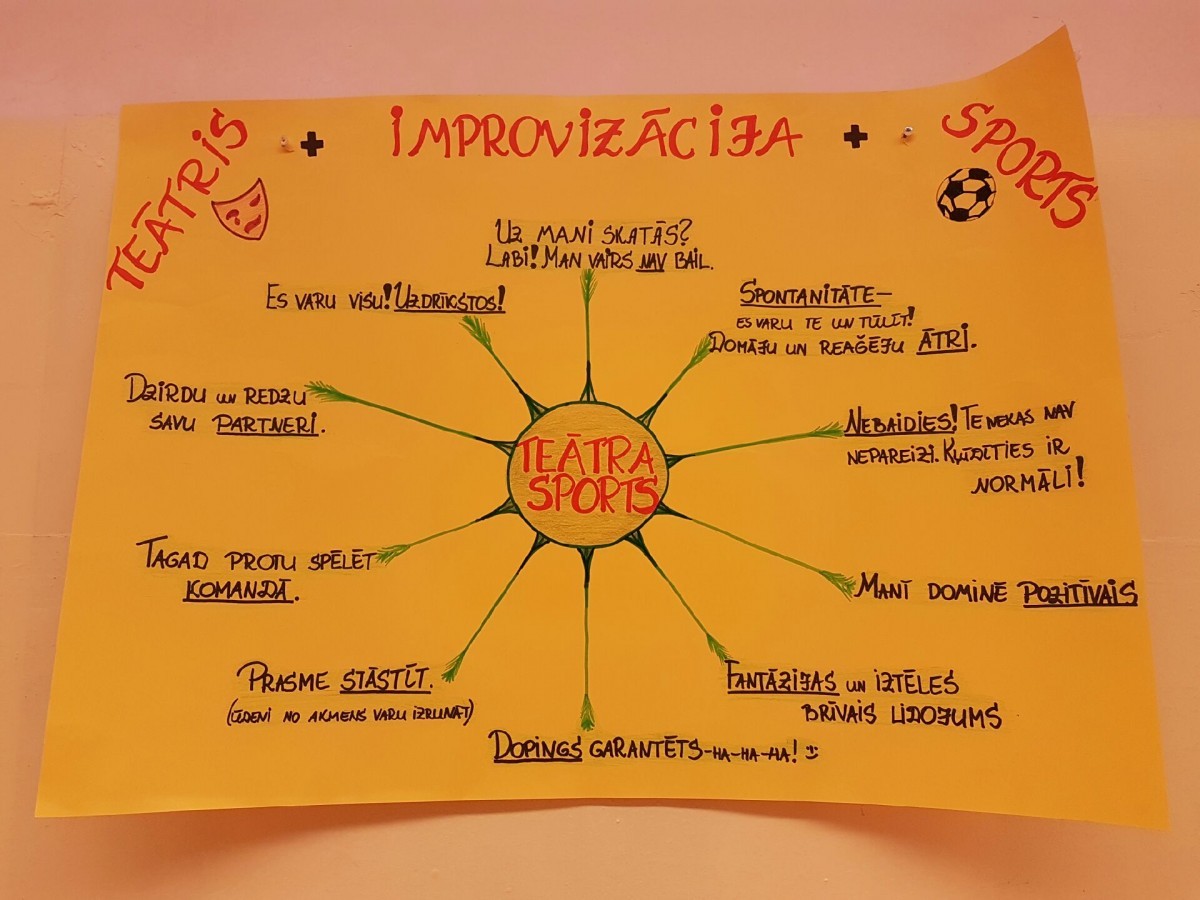 TEĀTRIS + IMPROVIZĀCIJA + SPORTS
UZ MANI SKATĀS?
LABI! MAN VAIRS NAV BAIL.
ES VARU VISU! UZDRĪKSTOS!
SPONTANITĀTE-
ES VARU TE UN TŪLĪT!
DOMĀJU UN REAĢĒJU ĀTRI.
DZIRDU UN REDZU
SAVU PARTNERI.
NEBAIDIES! TE NEKAS NAV
NEPAREIZI. KĻŪDĪTIES IR
NORMĀLI!
TEĀTRA
SPORTS
TAGAD PROTU SPĒLĒT
KOMANDĀ.
MANĪ DOMINĒ POZITĪVAIS
PRASME STĀSTĪT.
(ŪDENI NO AKMENS VARU IZRUNĀT)
FANTĀZIJAS UN IZTĒLES
BRĪVAIS LIDOJUMS
DOPINGS GARANTĒTS-HA-HA-HA! :)